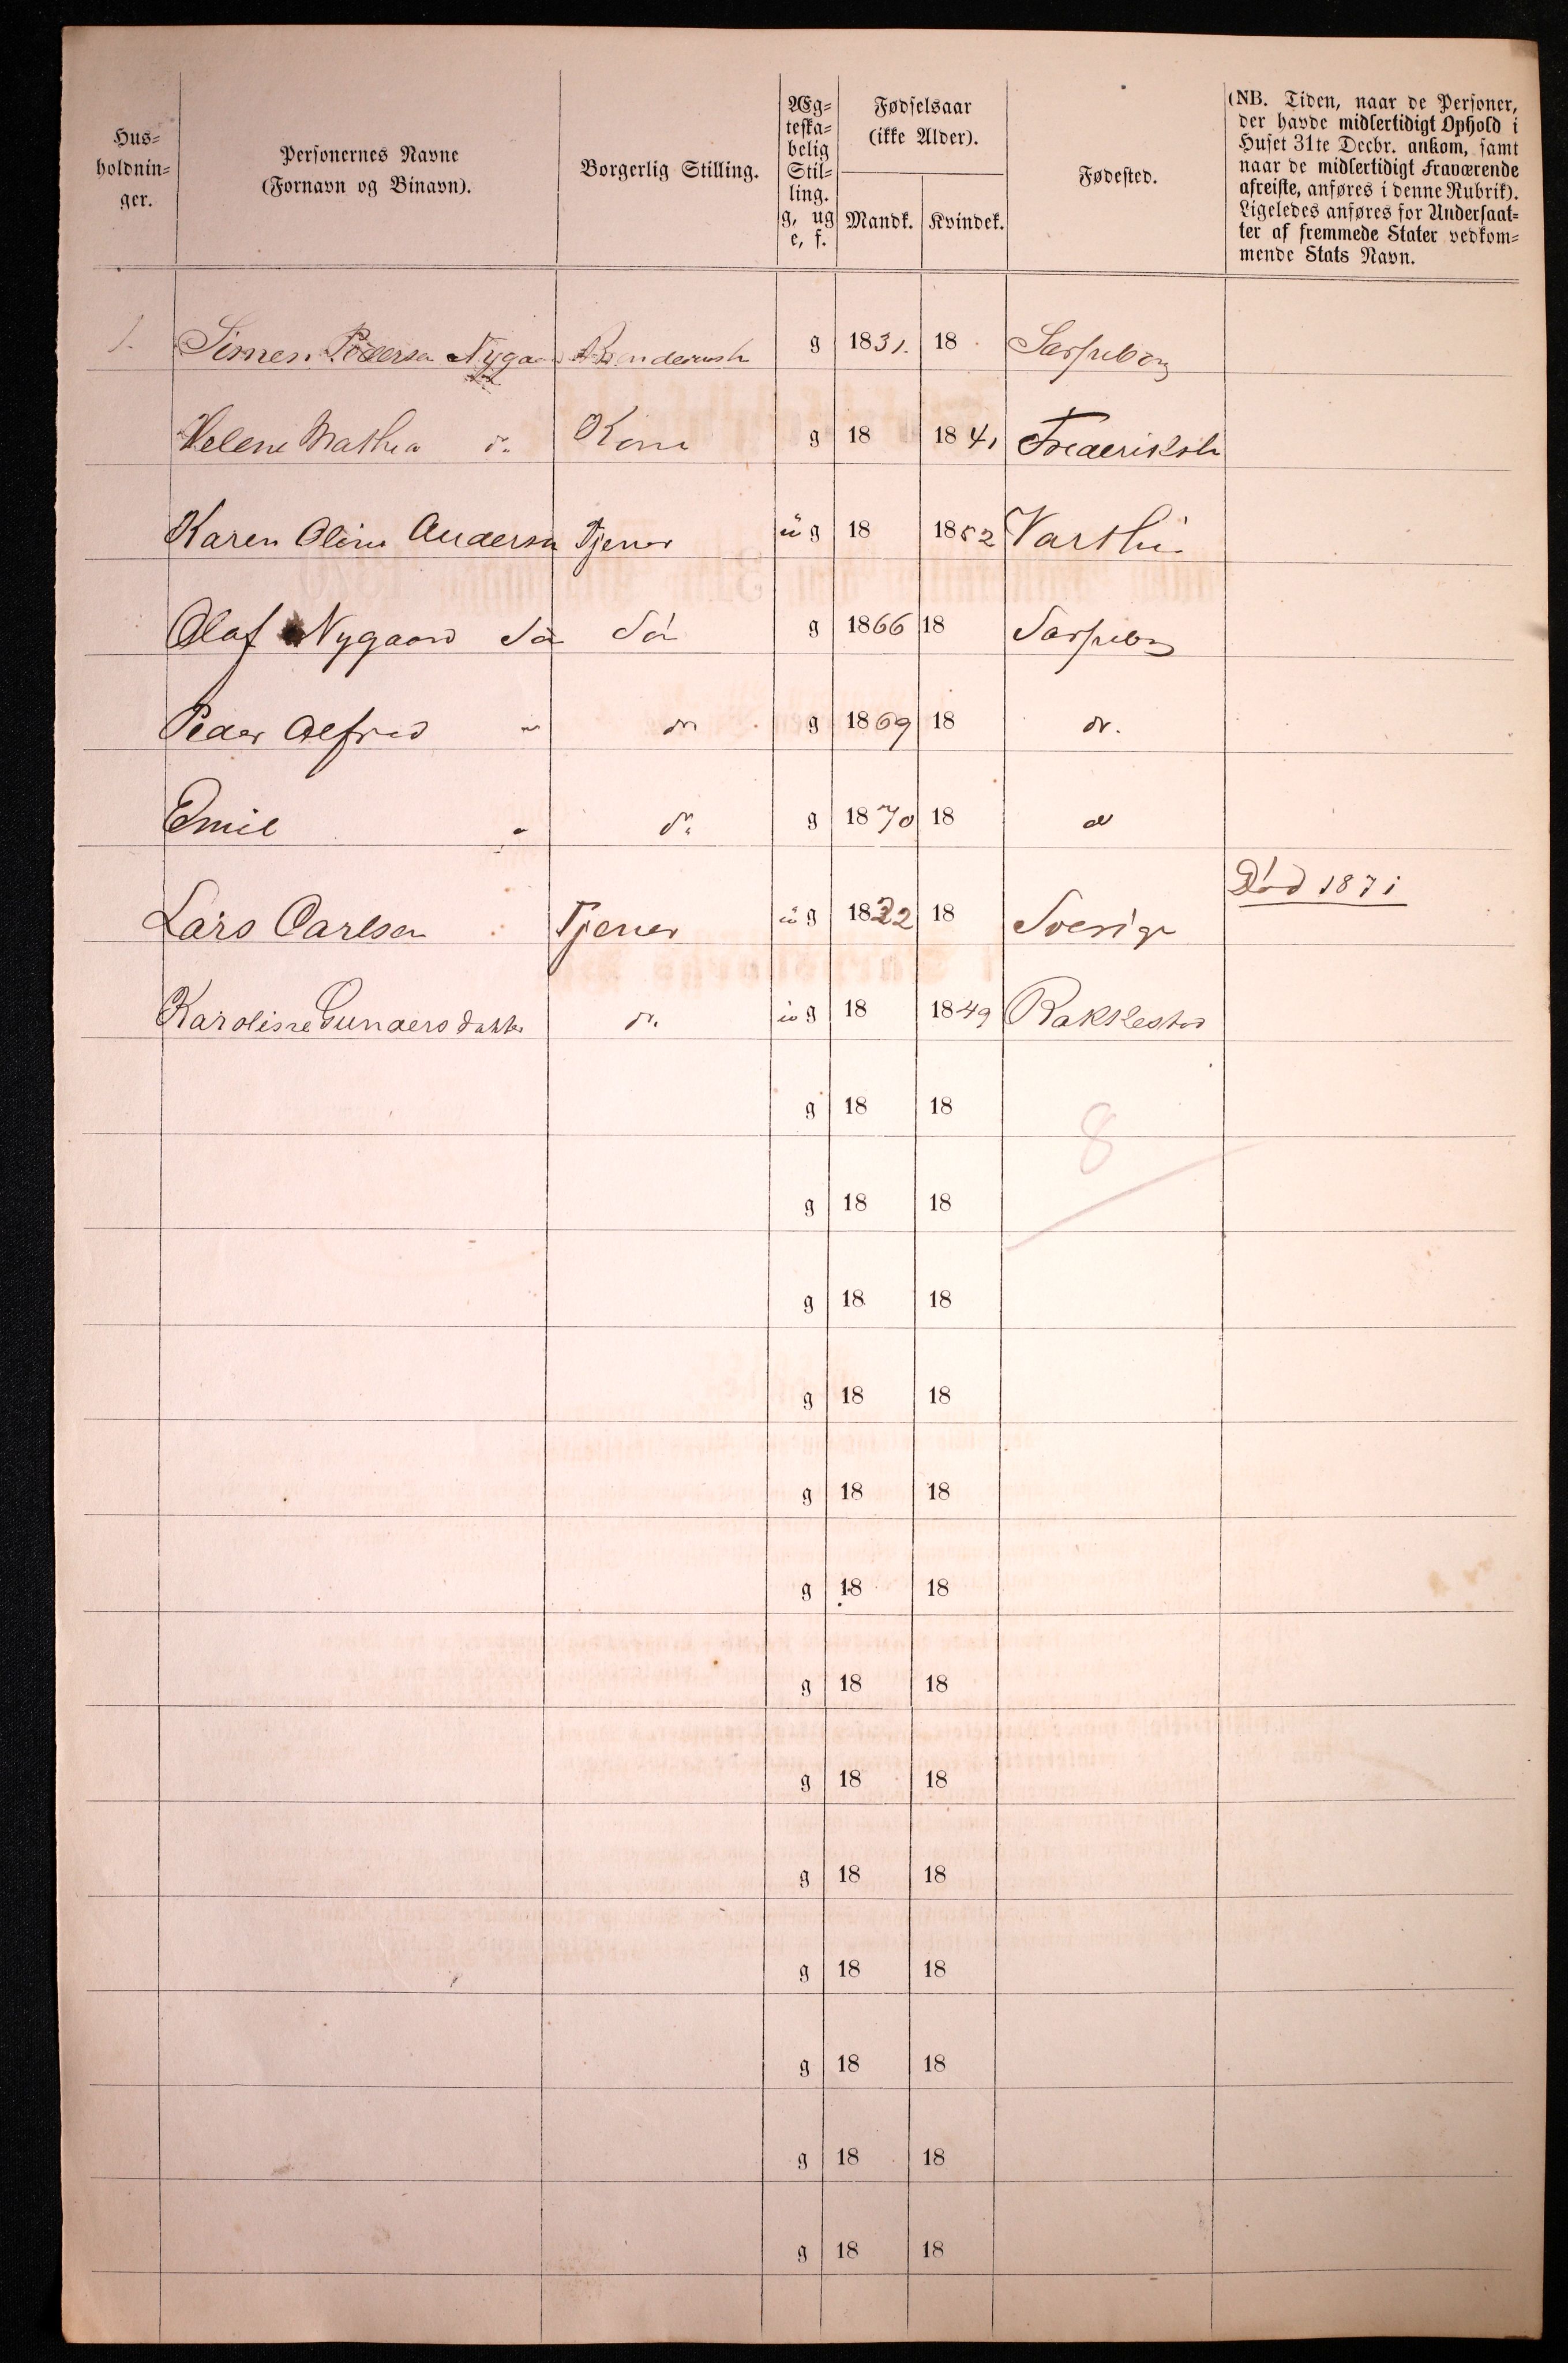 Hus-
holdnin-
ger.
Personernes Navne
(Fornavn og Binavn).
Borgerlig Stilling.
Æg-
teska-
belig
Stil-
ling.
g, ug
e, f.
Fødselsaar
(ikke Alder).
Mandk. Kvindek.
Fødested.
(NB. Tiden, naar de Personer,
der havde midlertidigt Ophold i
Huset 31te Decbr. ankom, samt
naar de midlertidigt Fraværende
afreiste, anføres i denne Rubrik).
Ligeledes anføres for Undersaat-
ter af fremmede Stater vedkom-
mende Stats Navn.
1. Simen Pedersen Nygaard g 1831. 18 Sarpsborg
Helene Mathea do. Kone g 18 1841 Frederiksh
Karen Oline Andersen Tjener ug 18 1852
Olaf Nygaard Søn g 1866 18 Sarpsborg
Peder Alfred " do g 1869 18 do.
Emil " do. g 1870 18 do
Død 1871
Lars Carlsen Tjener ug 1832 18 Sverige
Karoline Gundersdatter do. ug 18 1849 Rakkestad
g 18 18
8
g 18 18
g 18 18
g 18 18
g 18 18
g 18 18
g 18 18
g 18 18
g 18 18
g 18 18
g 18 18
g 18 18
g 18 18